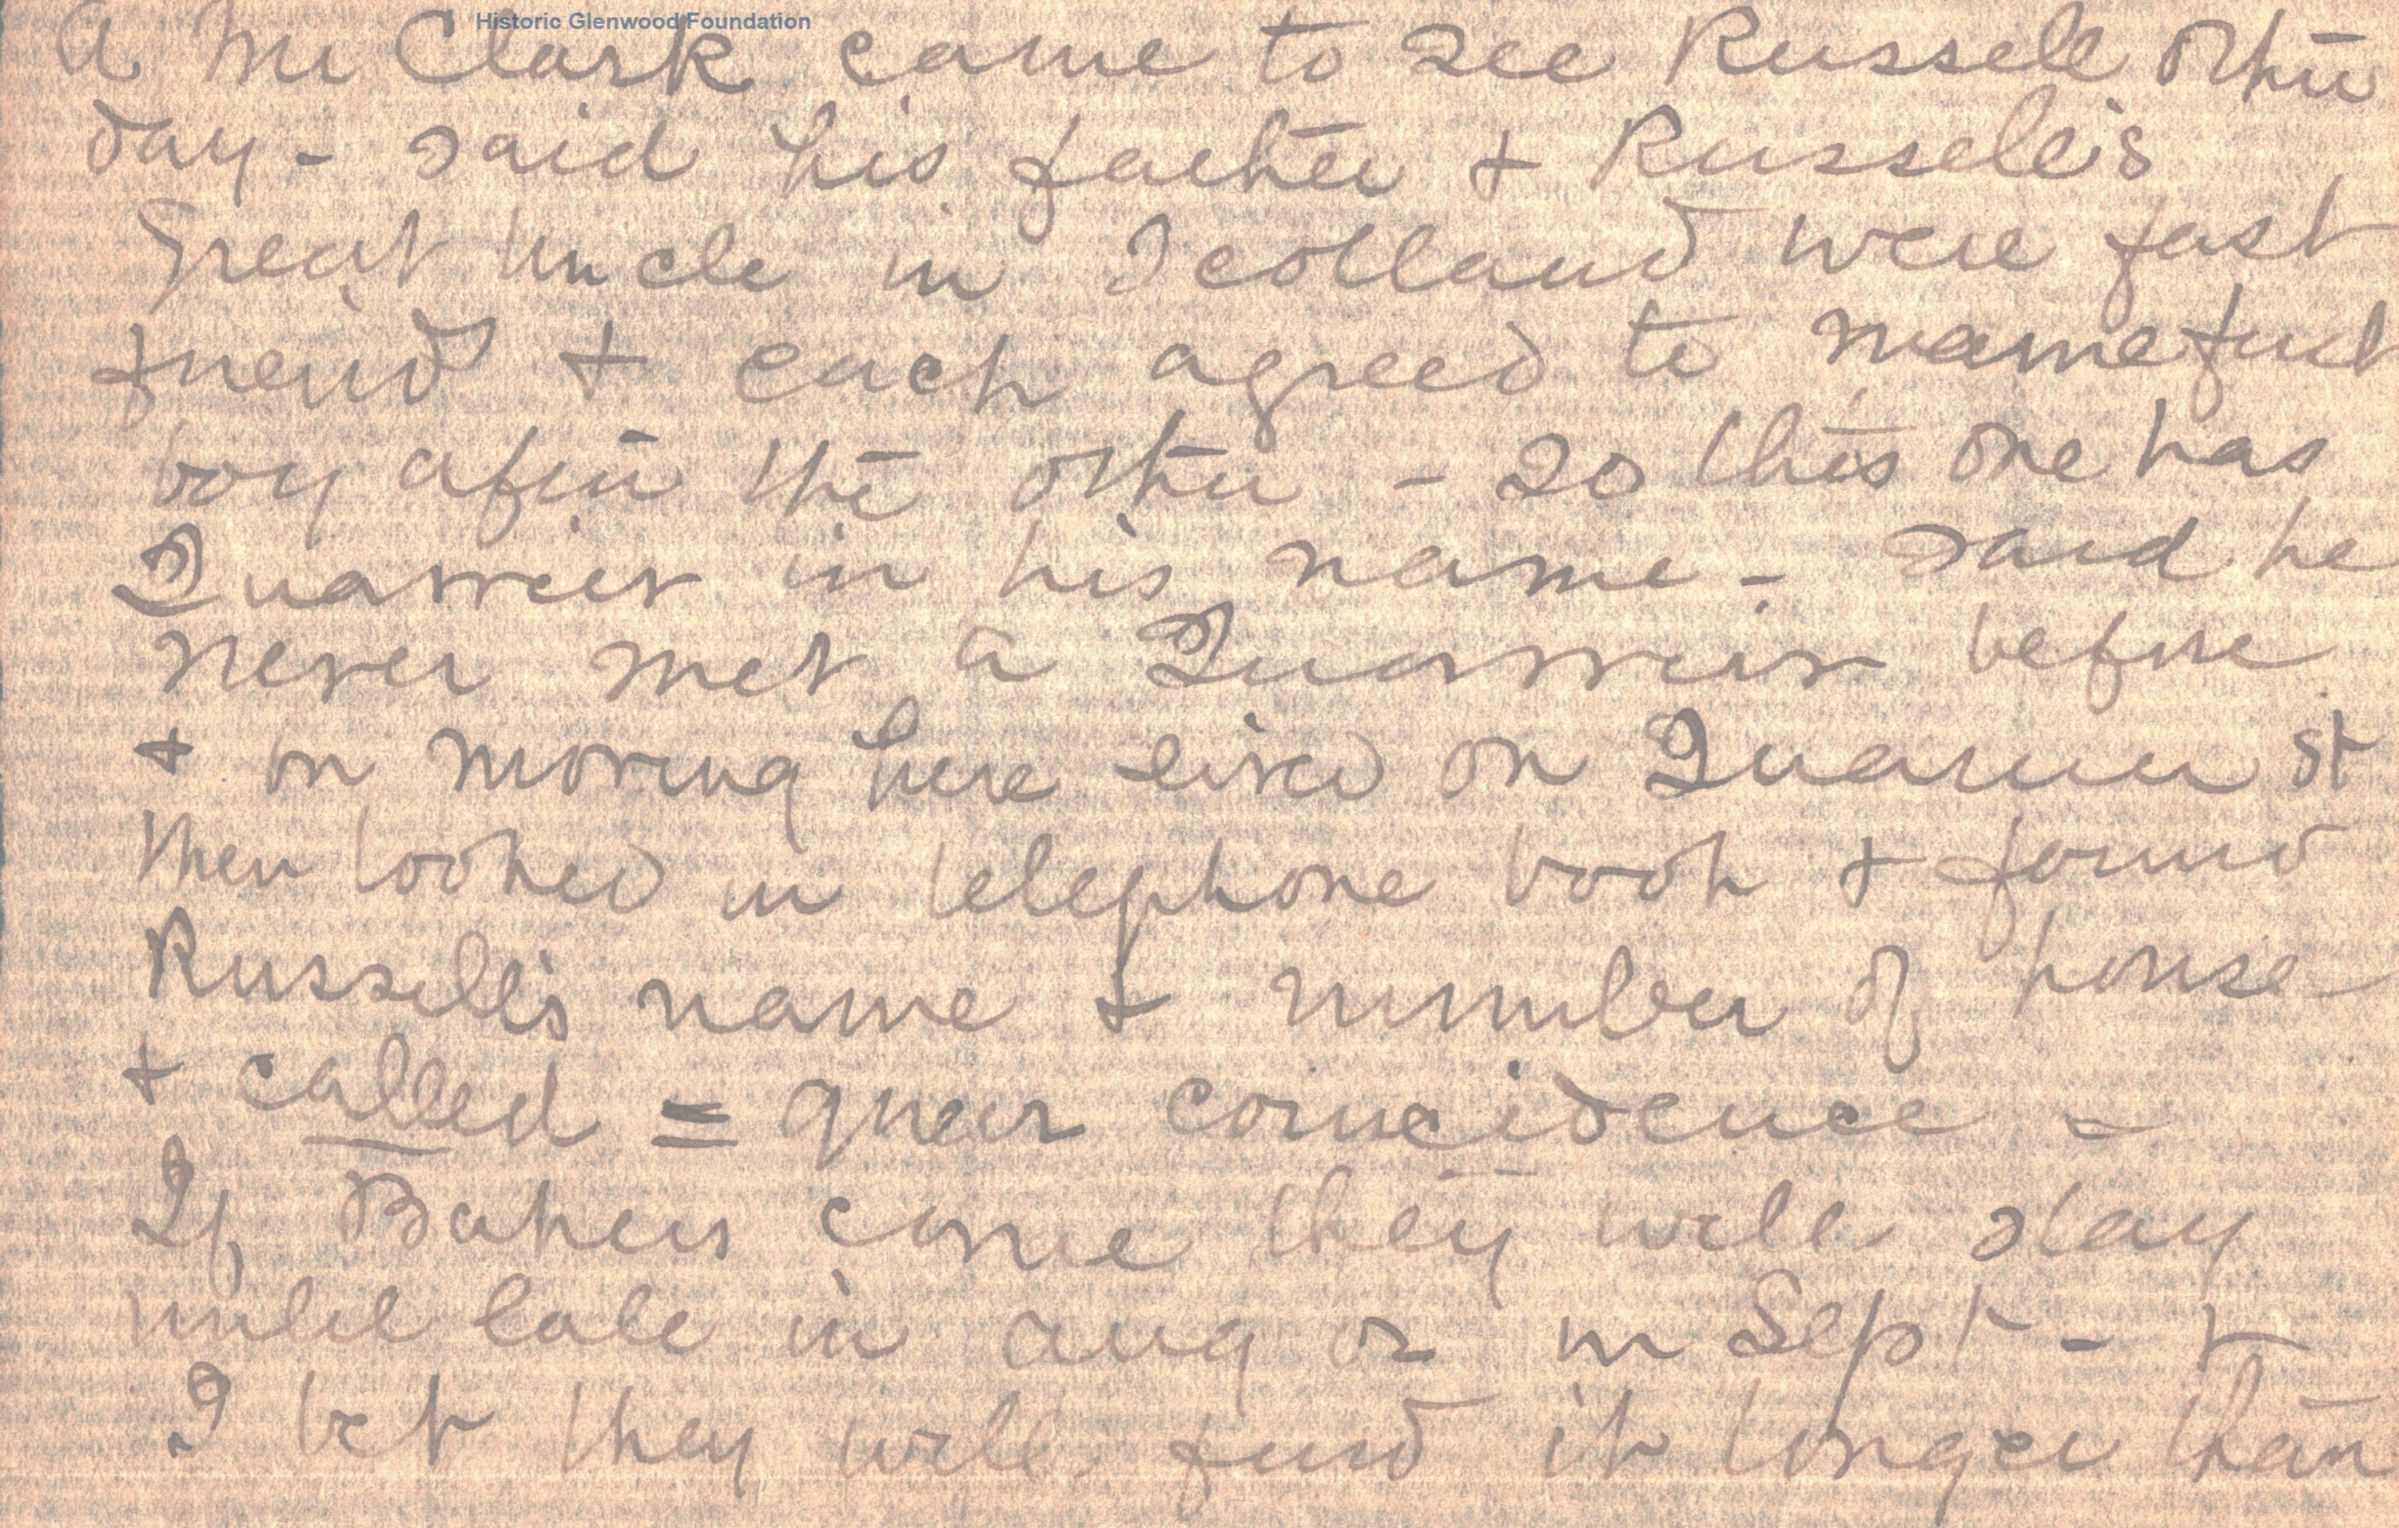 Historic Glenwood Foundation
A Mr Clark came to see Russell other
day - said his father + Russell's
Great Uncle in Scotland were fast
friend + each agreed to name first
boy after the other - so this one has
Quarrier in his name - said he
never met a Quarrier before
+ on moving here lived on Quarrier St
then looked in telephone book + found
Russell's name + number of house
+ called = queer coincidence -
If Bakers come they will stay
until late in Aug or in Sept - +
I bet they will find it longer than